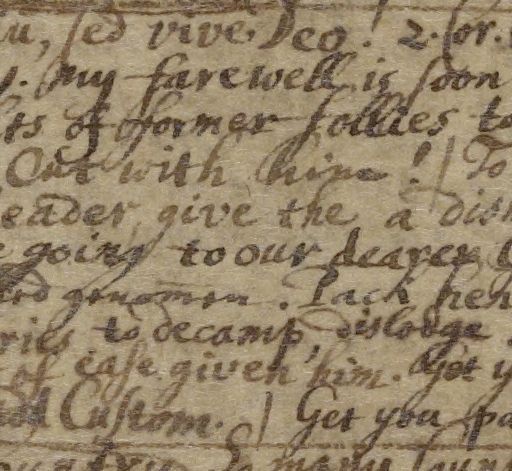 u, sed vive Deo! 2. Cor.
y. My farewell is soon
ts of former follies to
Out with him! / To
eader, give the a dish
e going to our dearer
Pack hen
ries to decamp, dislodge.
of ease given him. Get y
Custom. / Get you pa